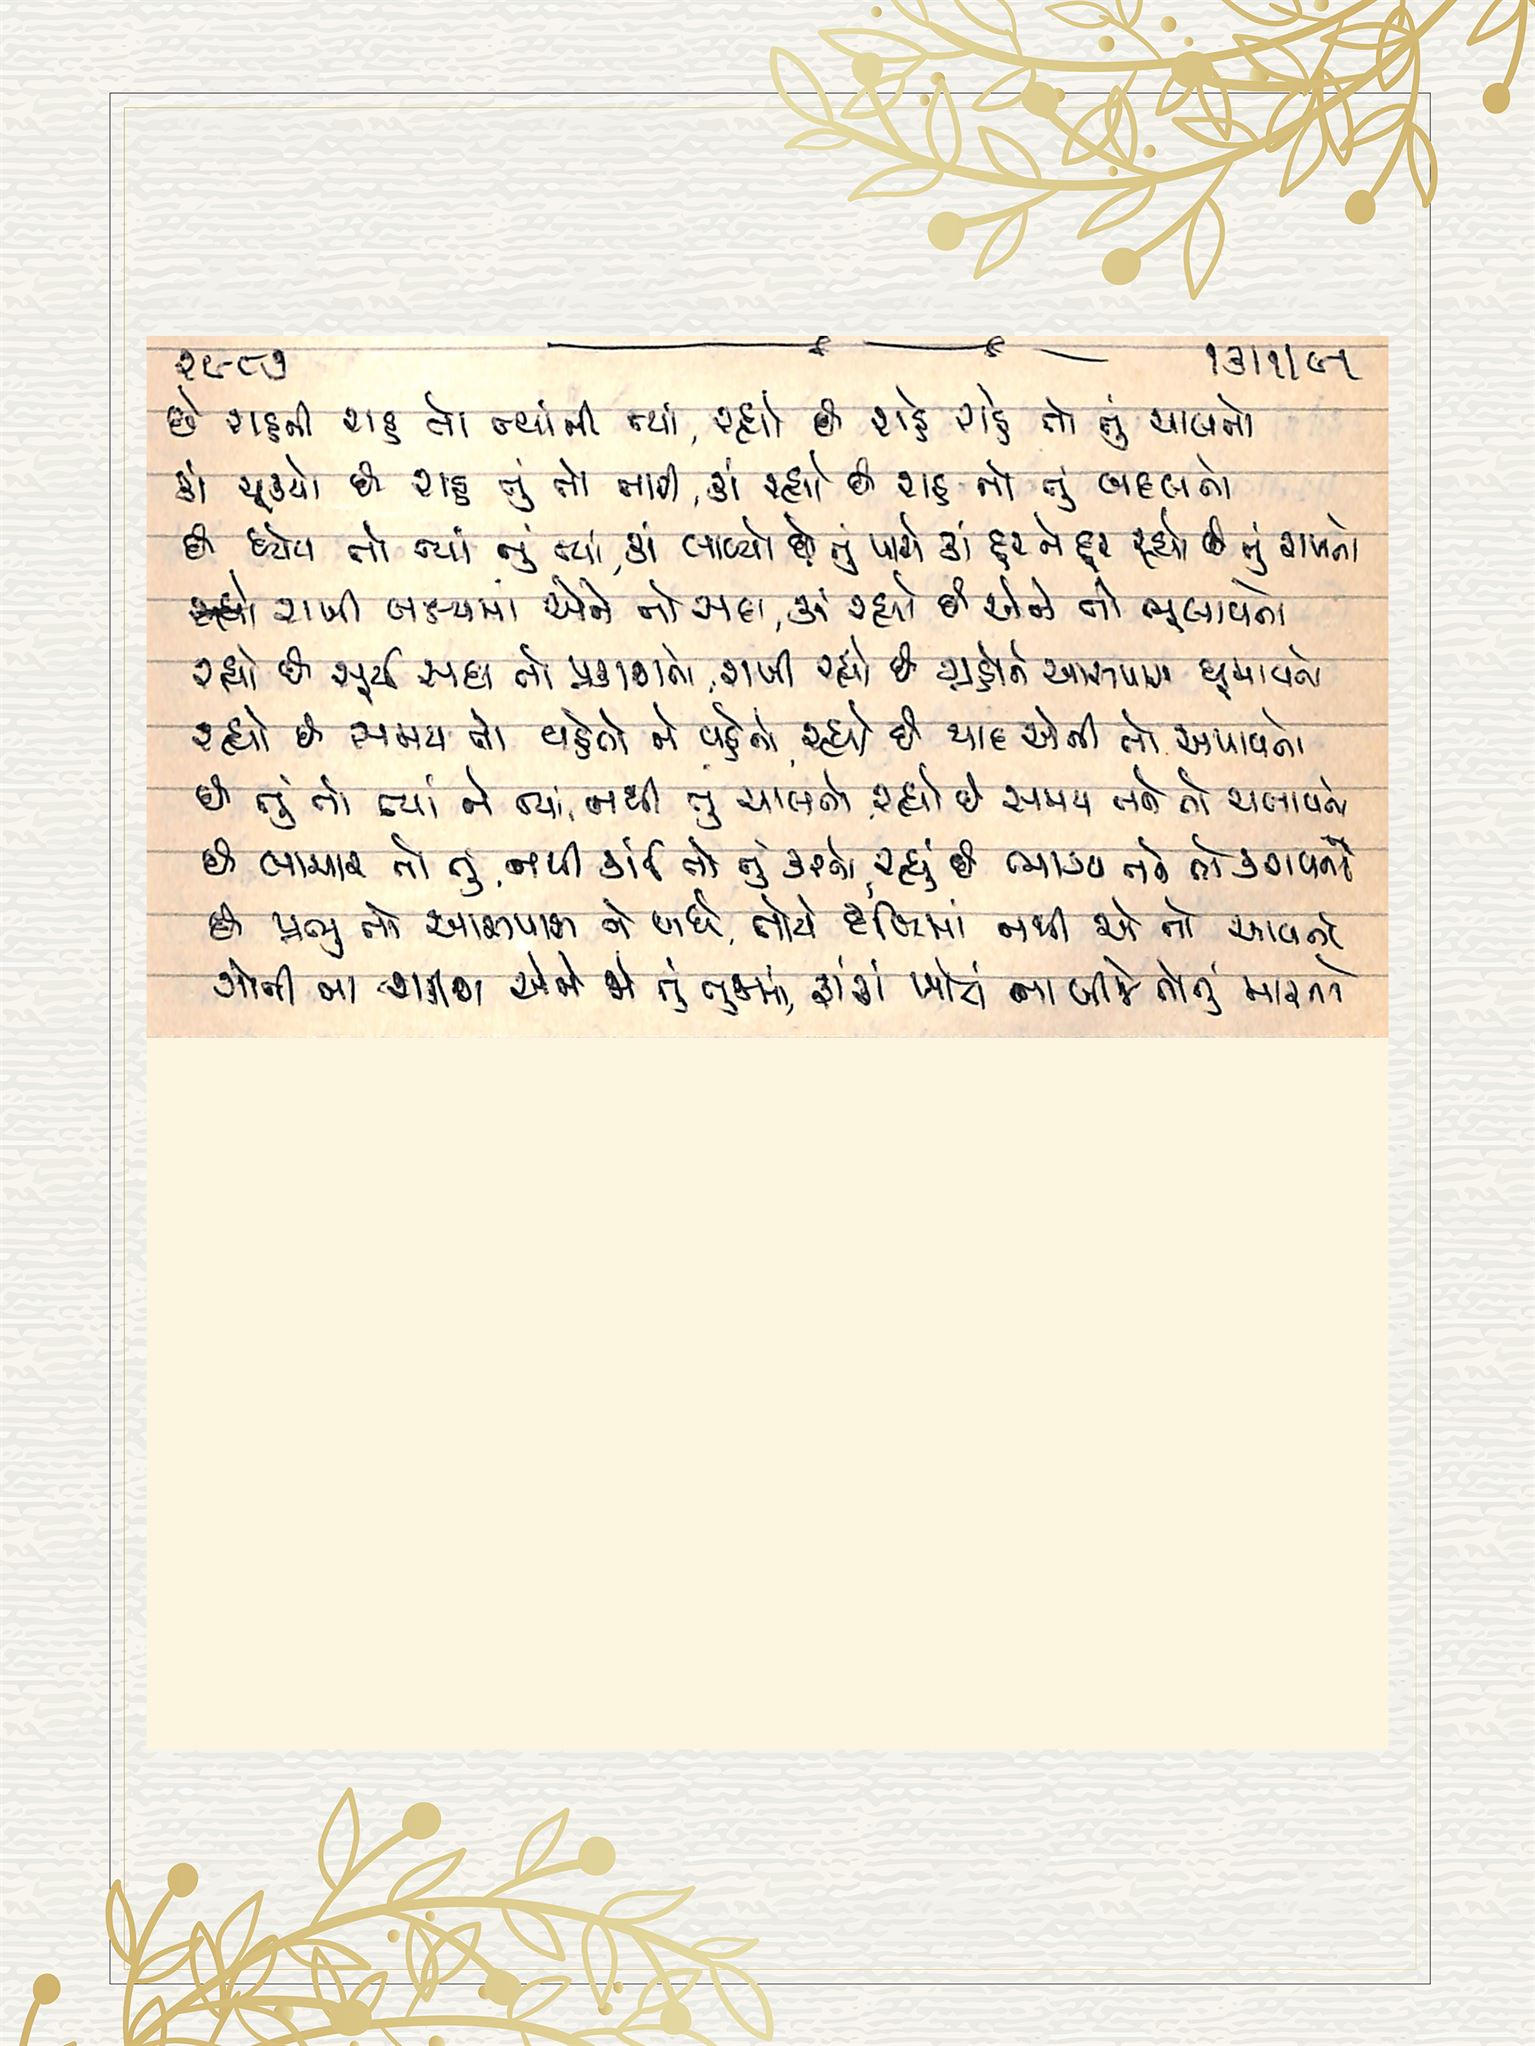 ૨૯૮૭ ૧૩/૧/૯૧
છે રાહની રાહ તો ત્યાંની ત્યાં, રહ્યો છે રાહે રાહે તો તું ચાલતો
કાં ચૂક્યો છે રાહ તું તો તારી, કાં રહ્યો છે રાહ તો તું બદલતો
છે ધ્યેય તો ત્યાં નું ત્યાં, કાં લાવ્યો છે તું પાસે કાં દૂર ને દૂર રહ્યો છે તું રાખતો
રાખી લક્ષ્યમાં એને તો સદા, કાં રહ્યો છે એને તો ભૂલાવતો
રહ્યો છે સૂર્ય સદા તો પ્રકાશતો, રાખી રહ્યો છે ગ્રહોને આસપાસ ઘૂમાવતો
રહ્યો છે સમય તો વહેતો ને વહેતો, રહ્યો છે યાદ એની તો અપાવતો
છે તું તો ત્યાં ને ત્યાં, નથી તું ચાલતો, રહ્યો છે સમય તને તો ચલાવતો
છે લાચાર તો તું, નથી કાંઈ તો તું કરતો, રહ્યું છે ભાગ્ય તને તો કરાવતો
છે પ્રભુ તો આસપાસ ને બધે, તોયે દૃષ્ટિમાં નથી એ તો આવતો
ગોતી ના શકીશ એને જો તું તુજમાં, ફાંફાં ખોટાં ના બીજે તો તું મારતો